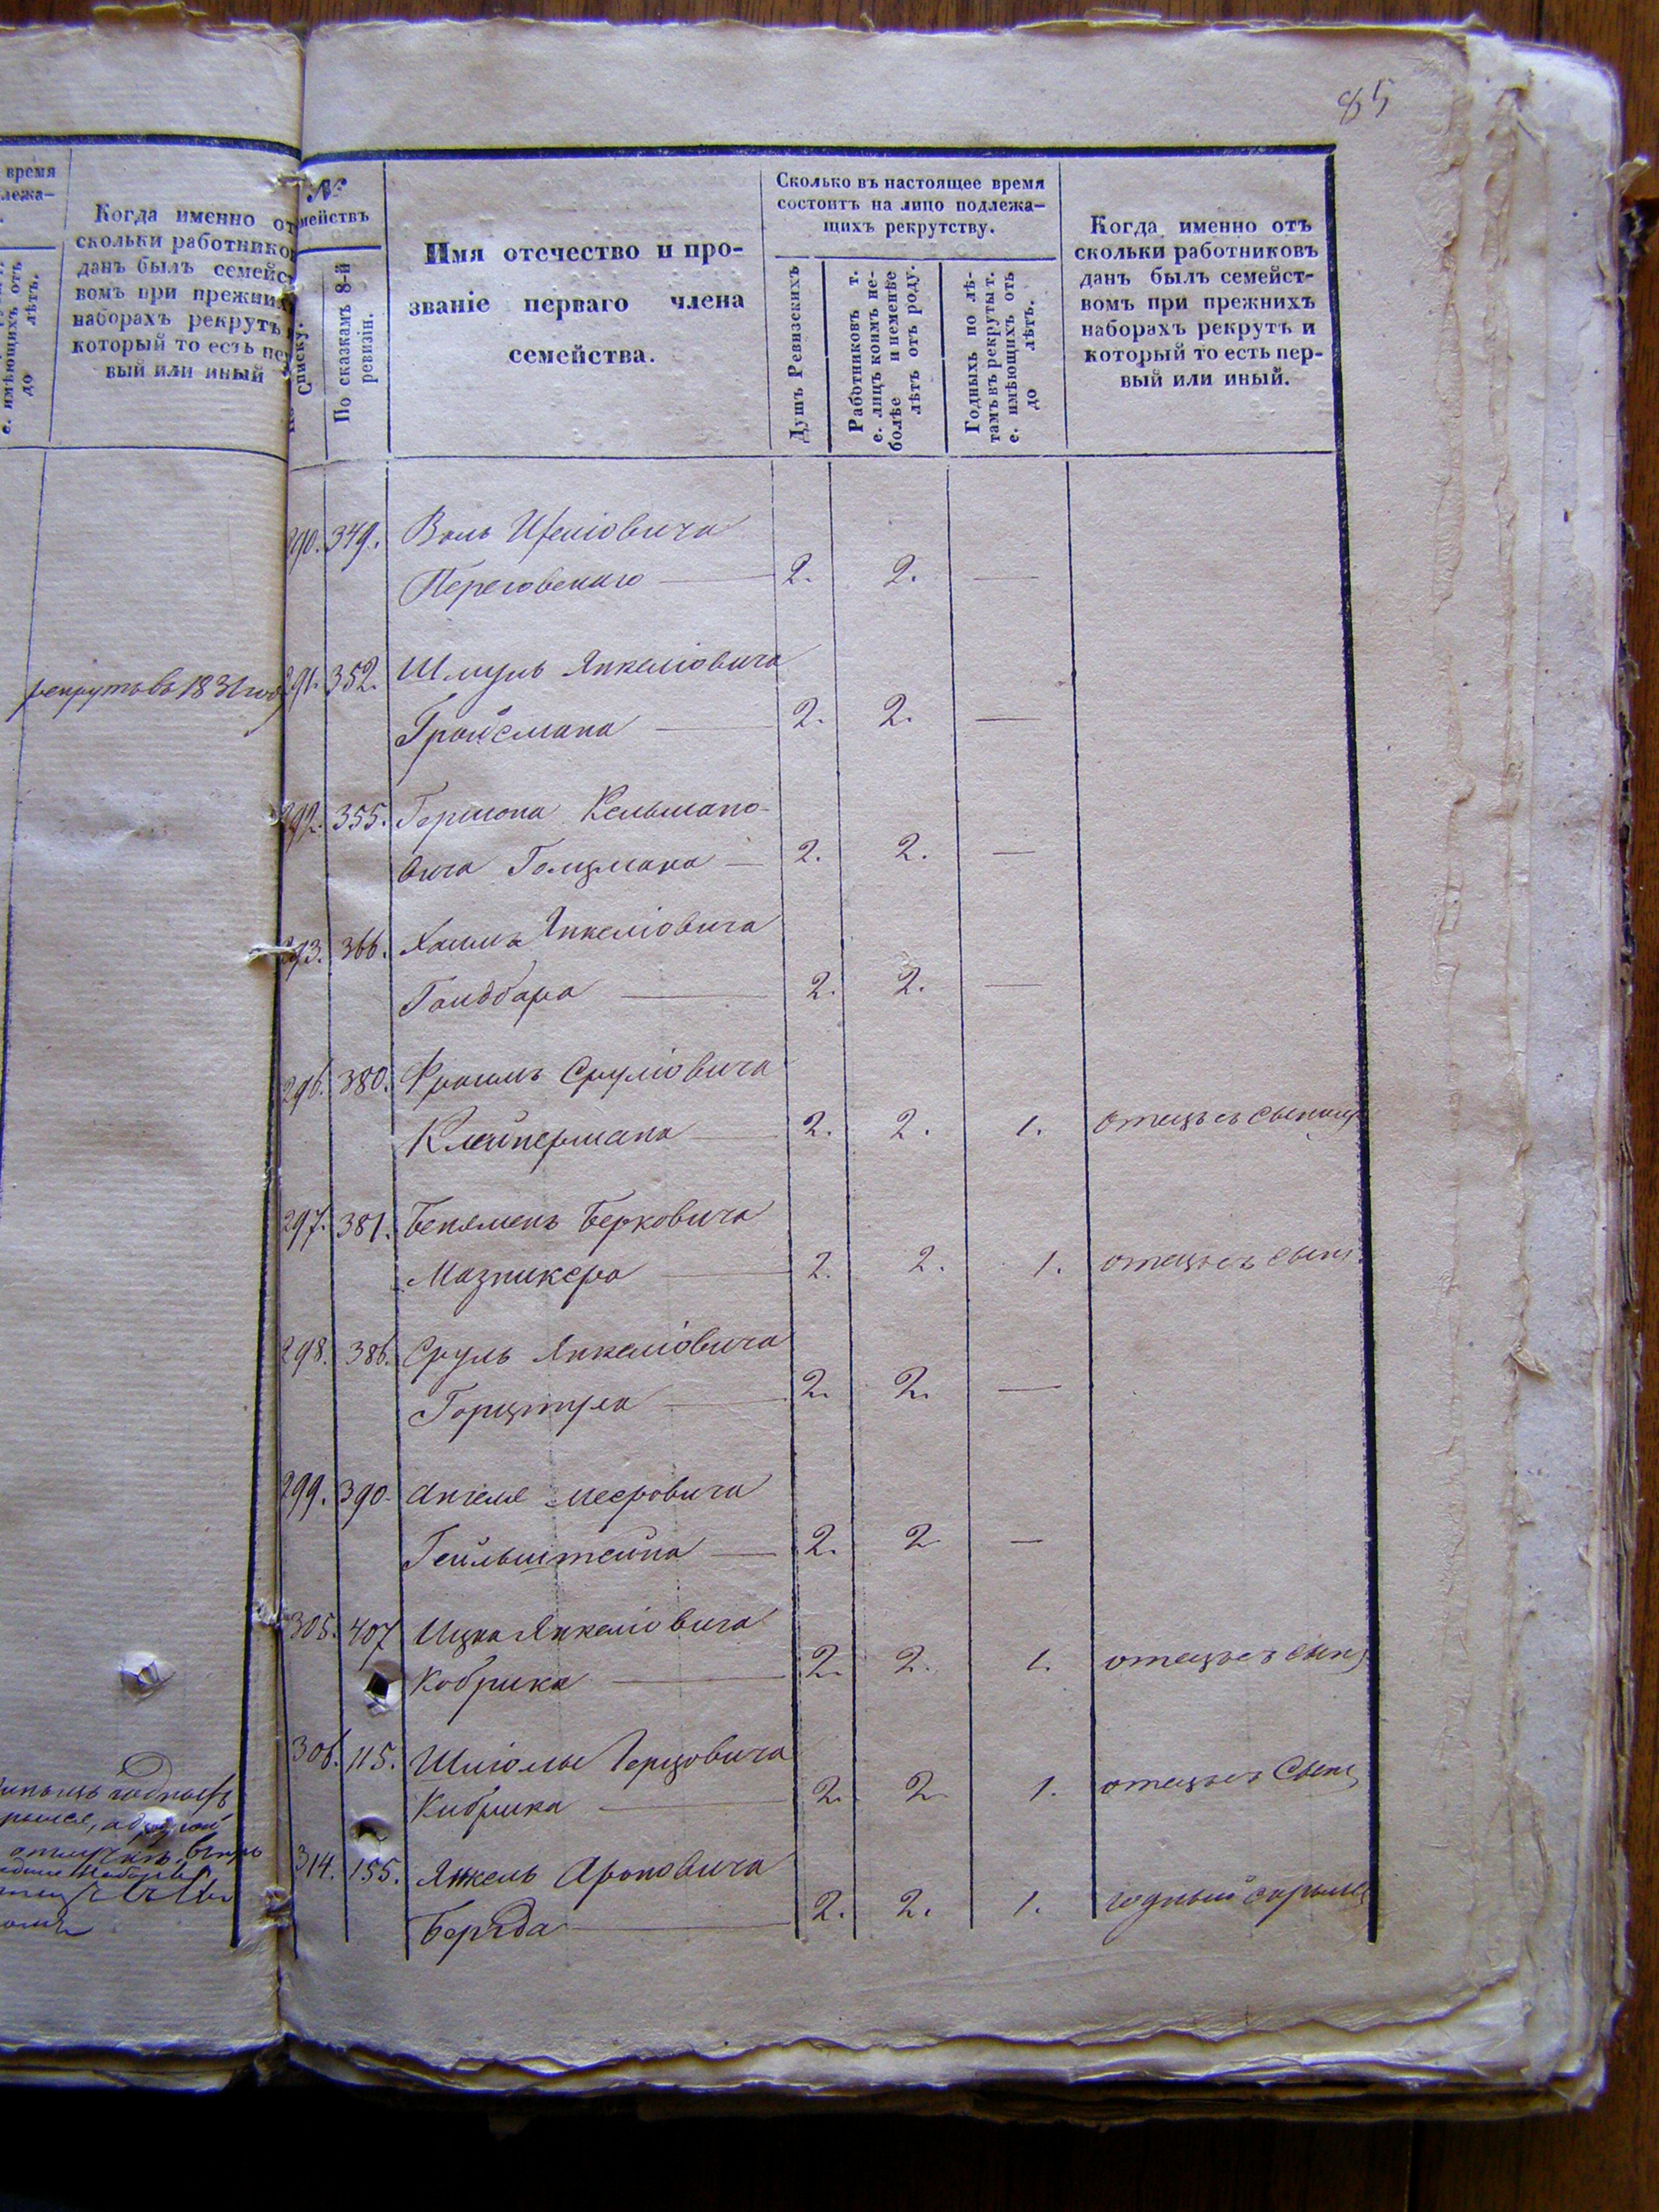 85
время
лежа-
Когда именно от
скольки работников
данъ былъ семейст
вомъ при прежнихъ
наборахъ рекрутъ
который то есть пер
вый или иный
е. имѣющихъ отъ
до лѣтъ.
рекрутъ въ 1831 году
№
мействъ
Списку.
По сказкамъ 8-й
ревизіи.
Имя отечество и про-
званіе перваго члена
семейства.
Сколько въ настоящее время
состоитъ на лицо подлежа-
щихъ рекрутству.
Душъ Ревизскихъ
Работниковъ т.
е. лицъ коимъ не-
болѣе и неменѣе
лѣтъ отъ роду.
Годныхъ по лѣ-
тамъ въ рекруты т.
е. имѣющихъ отъ
до лѣтъ.
Когда именно отъ
скольки работниковъ
данъ былъ семейст-
вомъ при прежнихъ
наборахъ рекрутъ и
который то есть пер-
вый или иный.
290. 349. Воль
Переговскаго — 2. 2. —
291. 352. Шмуль Янкеліовича
Гройсмана — 2. 2. —
292. 355. Гершона Кельмано-
вича Голцмана — 2. 2. —
293. 366. Хаимъ Янкеліовича
— 2. 2. —
296. 380. Фроимъ Сруліовича
Клейнермана — 2. 2. 1. отецъ съ сыномъ
297. 381. Бенямень Берковича
Мазникера — 2. 2. 1. отецъ съ сын
298. 386. Сруль Янкеліовича
— 2. 2. —
299. 390. Ангеля Мееровича
Гейльштейна — 2. 2 —
305. 407 Ицка Янкеліовича
Кобрика — 2. 2. 1. отецъ съ сын
306. 115. Шліомы Герцовича
Кибрика — 2. 2 1. отецъ съ сын
314. 155. Янкель Ароновича
— 2. 2. 1. годный